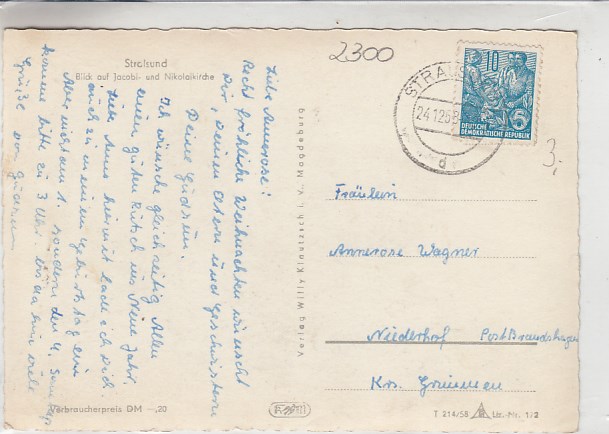 Stralsund
Blick auf Jacobi- und Nikolaikirche
2300
STRALS
24.12.58
d
10
5
DEUTSCHE
DEMOKRATISCHE REPUBLIK
3,-
Liebe Annerose!
Recht fröhliche Weihnachten wünscht
Dir, deinen Eltern und Geschwistern
Deine Gudrun.
Ich wünsche gleichzeitig Allen
einen guten Rutsch ins Neue Jahr.
Liebe Anne hiermit lade ich dich
auch zu meinem Geburtstag ein
Aber nicht am 1. sondern den 4.
komme bitte zu 3 Uhr. viele
Grüße von Gudrun
Verlag Willy Klautzsch i. V., Magdeburg
Fräulein
Annerose Wagner
Niederhof Post Brandshagen
Krs. Grimmen
Verbraucherpreis DM —,20
T 214/58
Liz.-Nr. 1/2